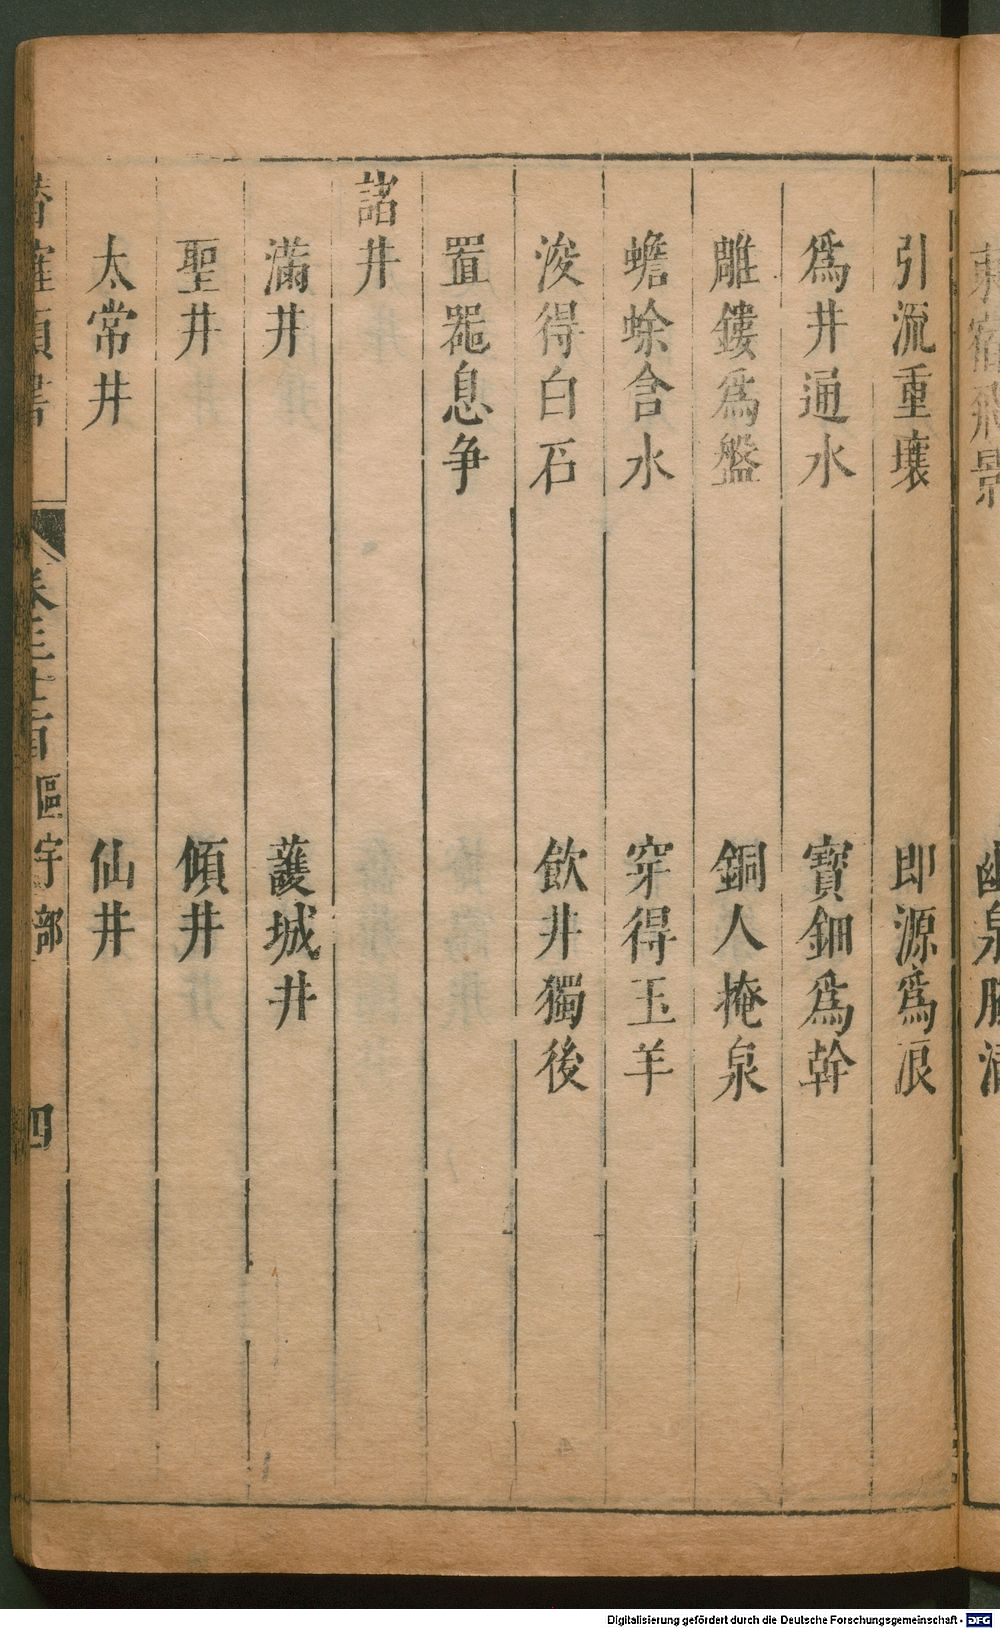 引流重壤　即源爲浪
爲井通水　寳鈿爲幹
雕鏤爲盤　銅人掩泉
蟾蜍含水　穿得玉羊
浚得白石　飲井獨後
置罷息爭
諸井
滿井　護城井
聖井　傾井
太常井　仙井
區宇部　四
Digitalisierung gefördert durch die Deutsche Forschungsgemeinschaft - DFG